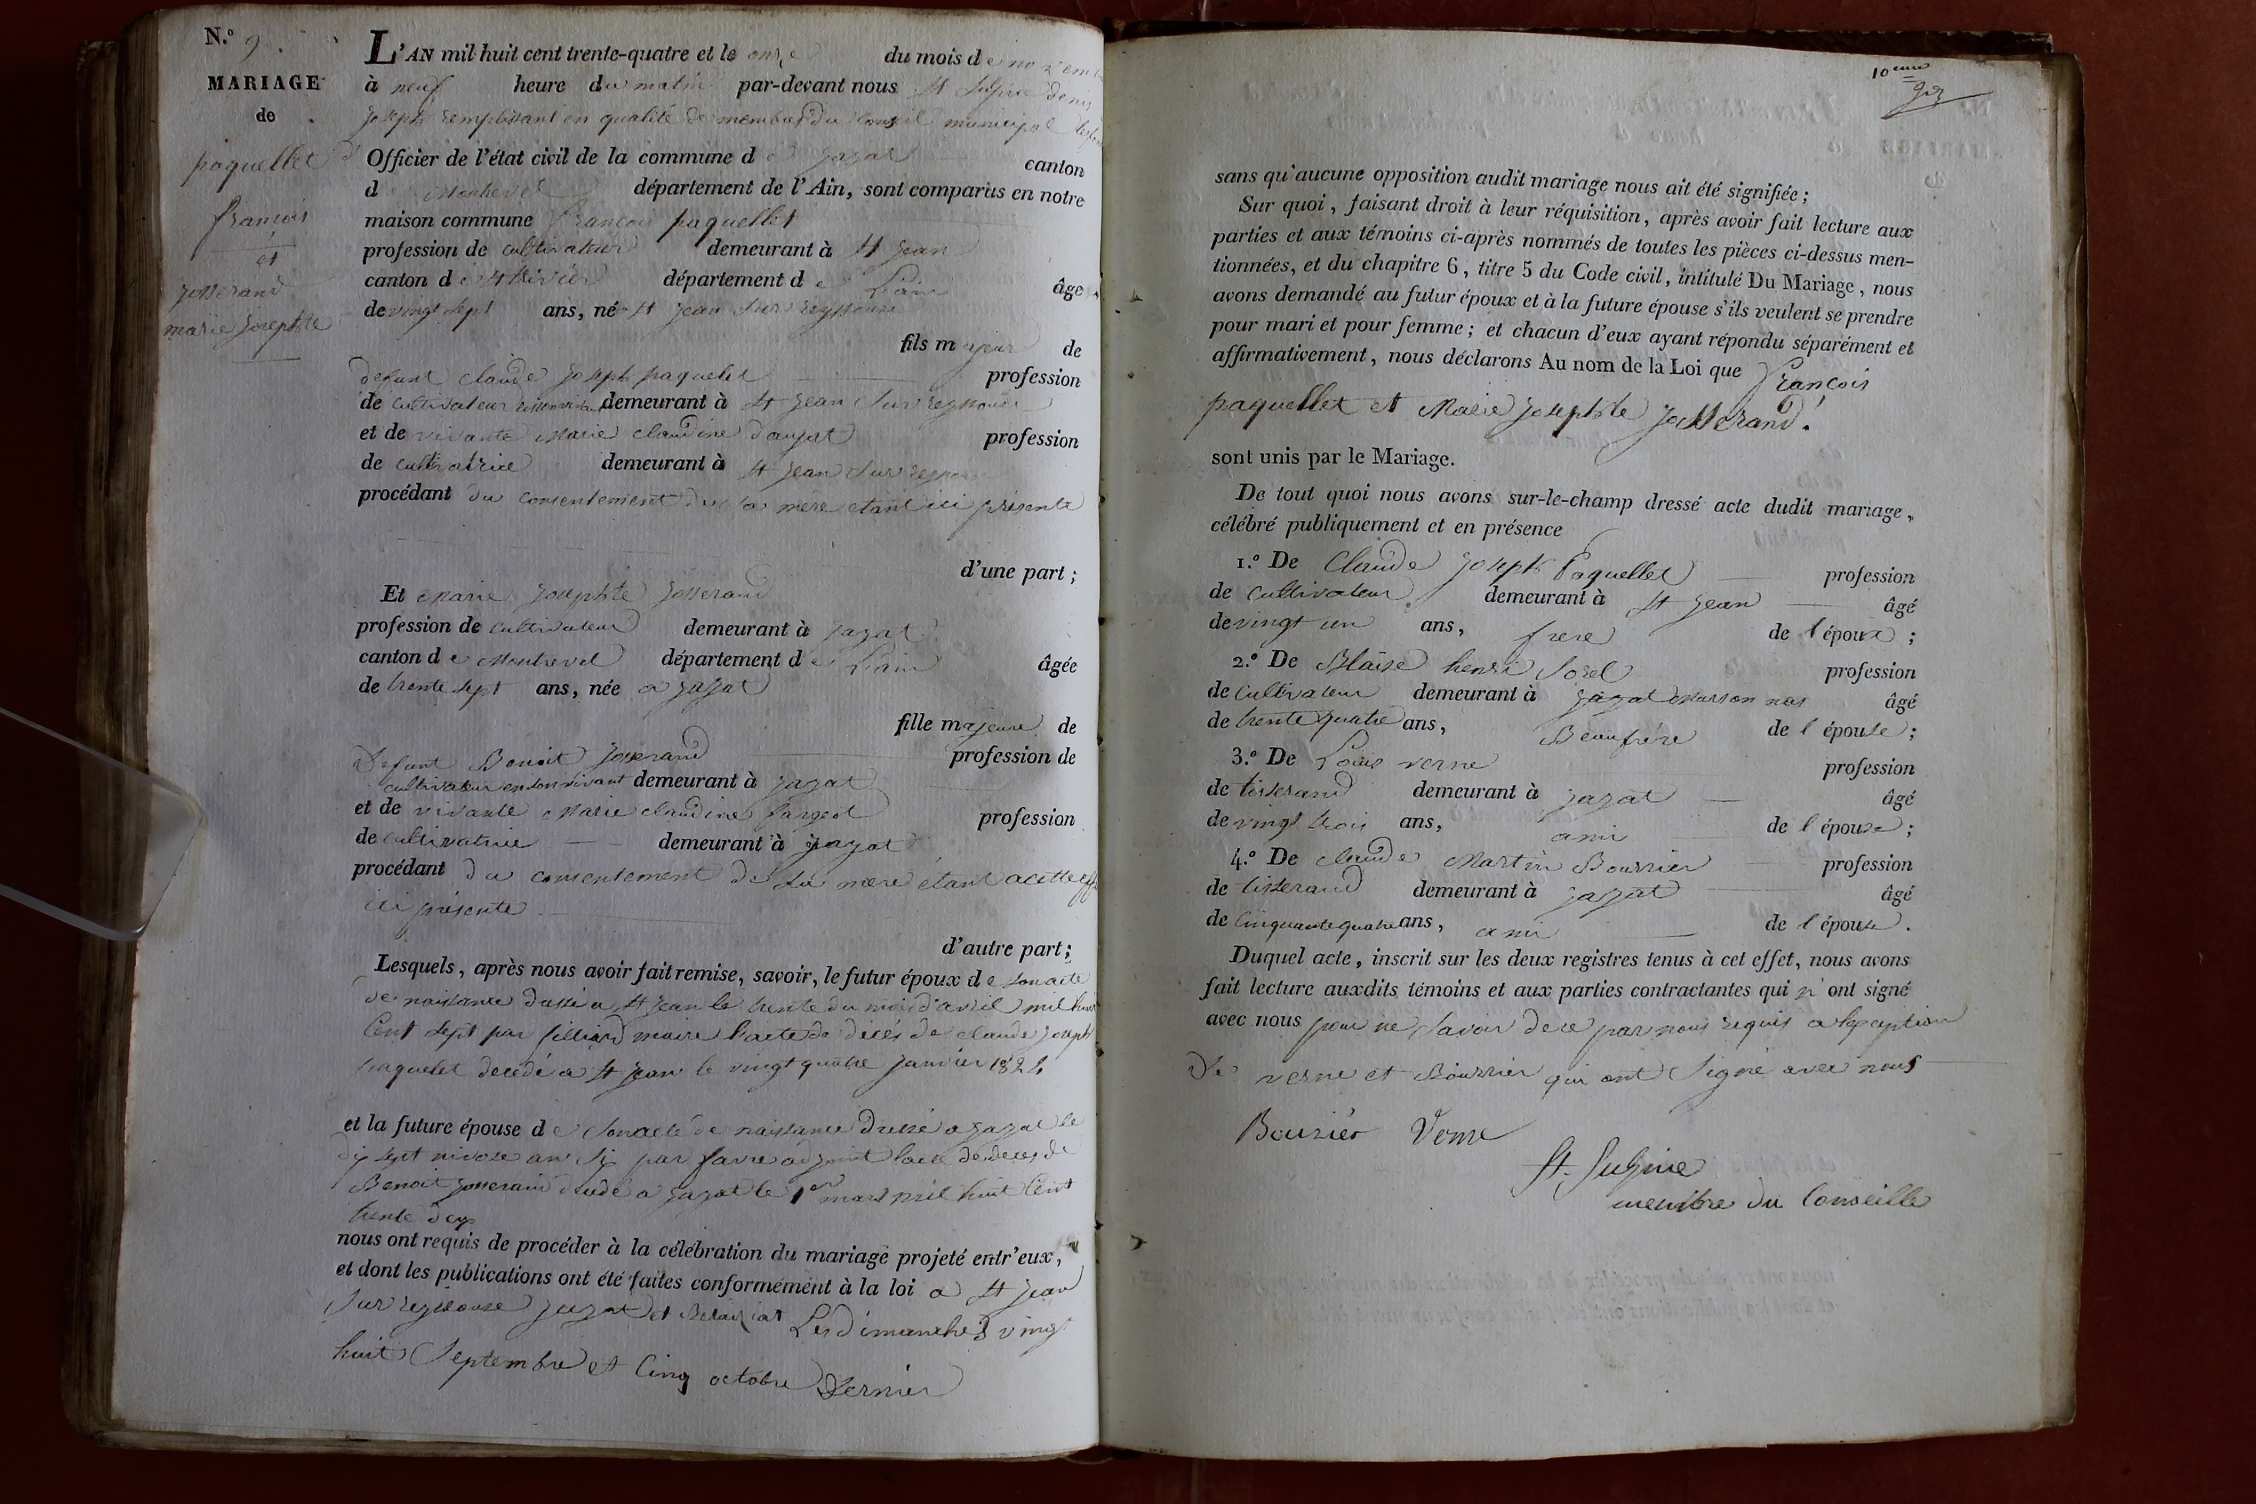 N.º 9.
MARIAGE
de
paquellet
françois
et
josserand
marie josephte
L'AN mil huit cent trente-quatre et le onze du mois de novembre
à neuf heure du matin par-devant nous St Sulpice denis
joseph remplissant en qualité de membre du conseil municipal
Officier de l'état civil de la commune de jayat canton
de Montrevel département de l'Ain, sont comparus en notre
maison commune françois paquellet
profession de cultivateur demeurant à St jean
canton de St trivier département de L'ain âge
de vingt sept ans, né St jean sur reyssouse
fils majeur de
defunt claude joseph paquelet profession
de cultivateur demeurant à St jean sur reyssouse
et de vivante Marie claudine daujat profession
de cultivatrice demeurant à St jean sur
procédant du consentement de sa mère etant ici présente
d'une part ;
Et marie josephte josserand
profession de cultivateur demeurant à jayat
canton de Montrevel département de L'ain âgée
de trente sept ans, née a jayat
fille majeure de
Defunt Benoit josserand profession de
cultivateur en son vivant demeurant à jayat
et de vivante Marie claudine profession
de cultivatrice demeurant à jayat
procédant du consentement de sa mere étant a cette
ici présente
d'autre part ;
Lesquels, après nous avoir fait remise, savoir, le futur époux de son acte
de naissance dressé a St jean le trente du mois d'avril mil huit
cent sept par maire l'acte de décés de claude joseph
paquelet decedé a St jean le vingt quatre janvier 1824
et la future épouse de son acte de naissance dressé a jayat le
dix sept nivose an six par favre adjoint l'acte de deces de
Benoit josserand decedé a jayat le 1er mars mil huit cent
trente deux
nous ont requis de procéder à la célébration du mariage projeté entr'eux,
et dont les publications ont été faites conformément à la loi a St jean
sur reyssouse jayat et Les dimanches vingt
huit Septembre et Cinq octobre Dernier
10eme
sans qu'aucune opposition audit mariage nous ait été signifiée ;
Sur quoi, faisant droit à leur réquisition, après avoir fait lecture aux
parties et aux témoins ci-après nommés de toutes les pièces ci-dessus men-
tionnées, et du chapitre 6, titre 5 du Code civil, intitulé Du Mariage, nous
avons demandé au futur époux et à la future épouse s'ils veulent se prendre
pour mari et pour femme ; et chacun d'eux ayant répondu séparément et
affirmativement, nous déclarons Au nom de la Loi que françois
paquellet et Marie josephte josserand.
sont unis par le Mariage.
De tout quoi nous avons sur-le-champ dressé acte dudit mariage,
célébré publiquement et en présence
1.º De Claude joseph Paquellet profession
de cultivateur demeurant à St jean âgé
de vingt un ans, frere de l'époux ;
2.º De Blaise henri Sorel profession
de cultivateur demeurant à jayat âgé
de trente quatre ans, Beaufrére de l'épouse ;
3.º De Louis verne profession
de tisserand demeurant à jayat âgé
de vingt trois ans, ami de l'épouse ;
4.º De claude Martin Bourrier profession
de tisserand demeurant à jayat âgé
de cinquante quatre ans, ami de l'épouse.
Duquel acte, inscrit sur les deux registres tenus à cet effet, nous avons
fait lecture auxdits témoins et aux parties contractantes qui n'ont signé
avec nous pour ne savoir de ce par nous requis a lepception
De verne et Bourrier qui ont Signé avec nous
Bourier Verne
St. Sulpice
membre du Conseille